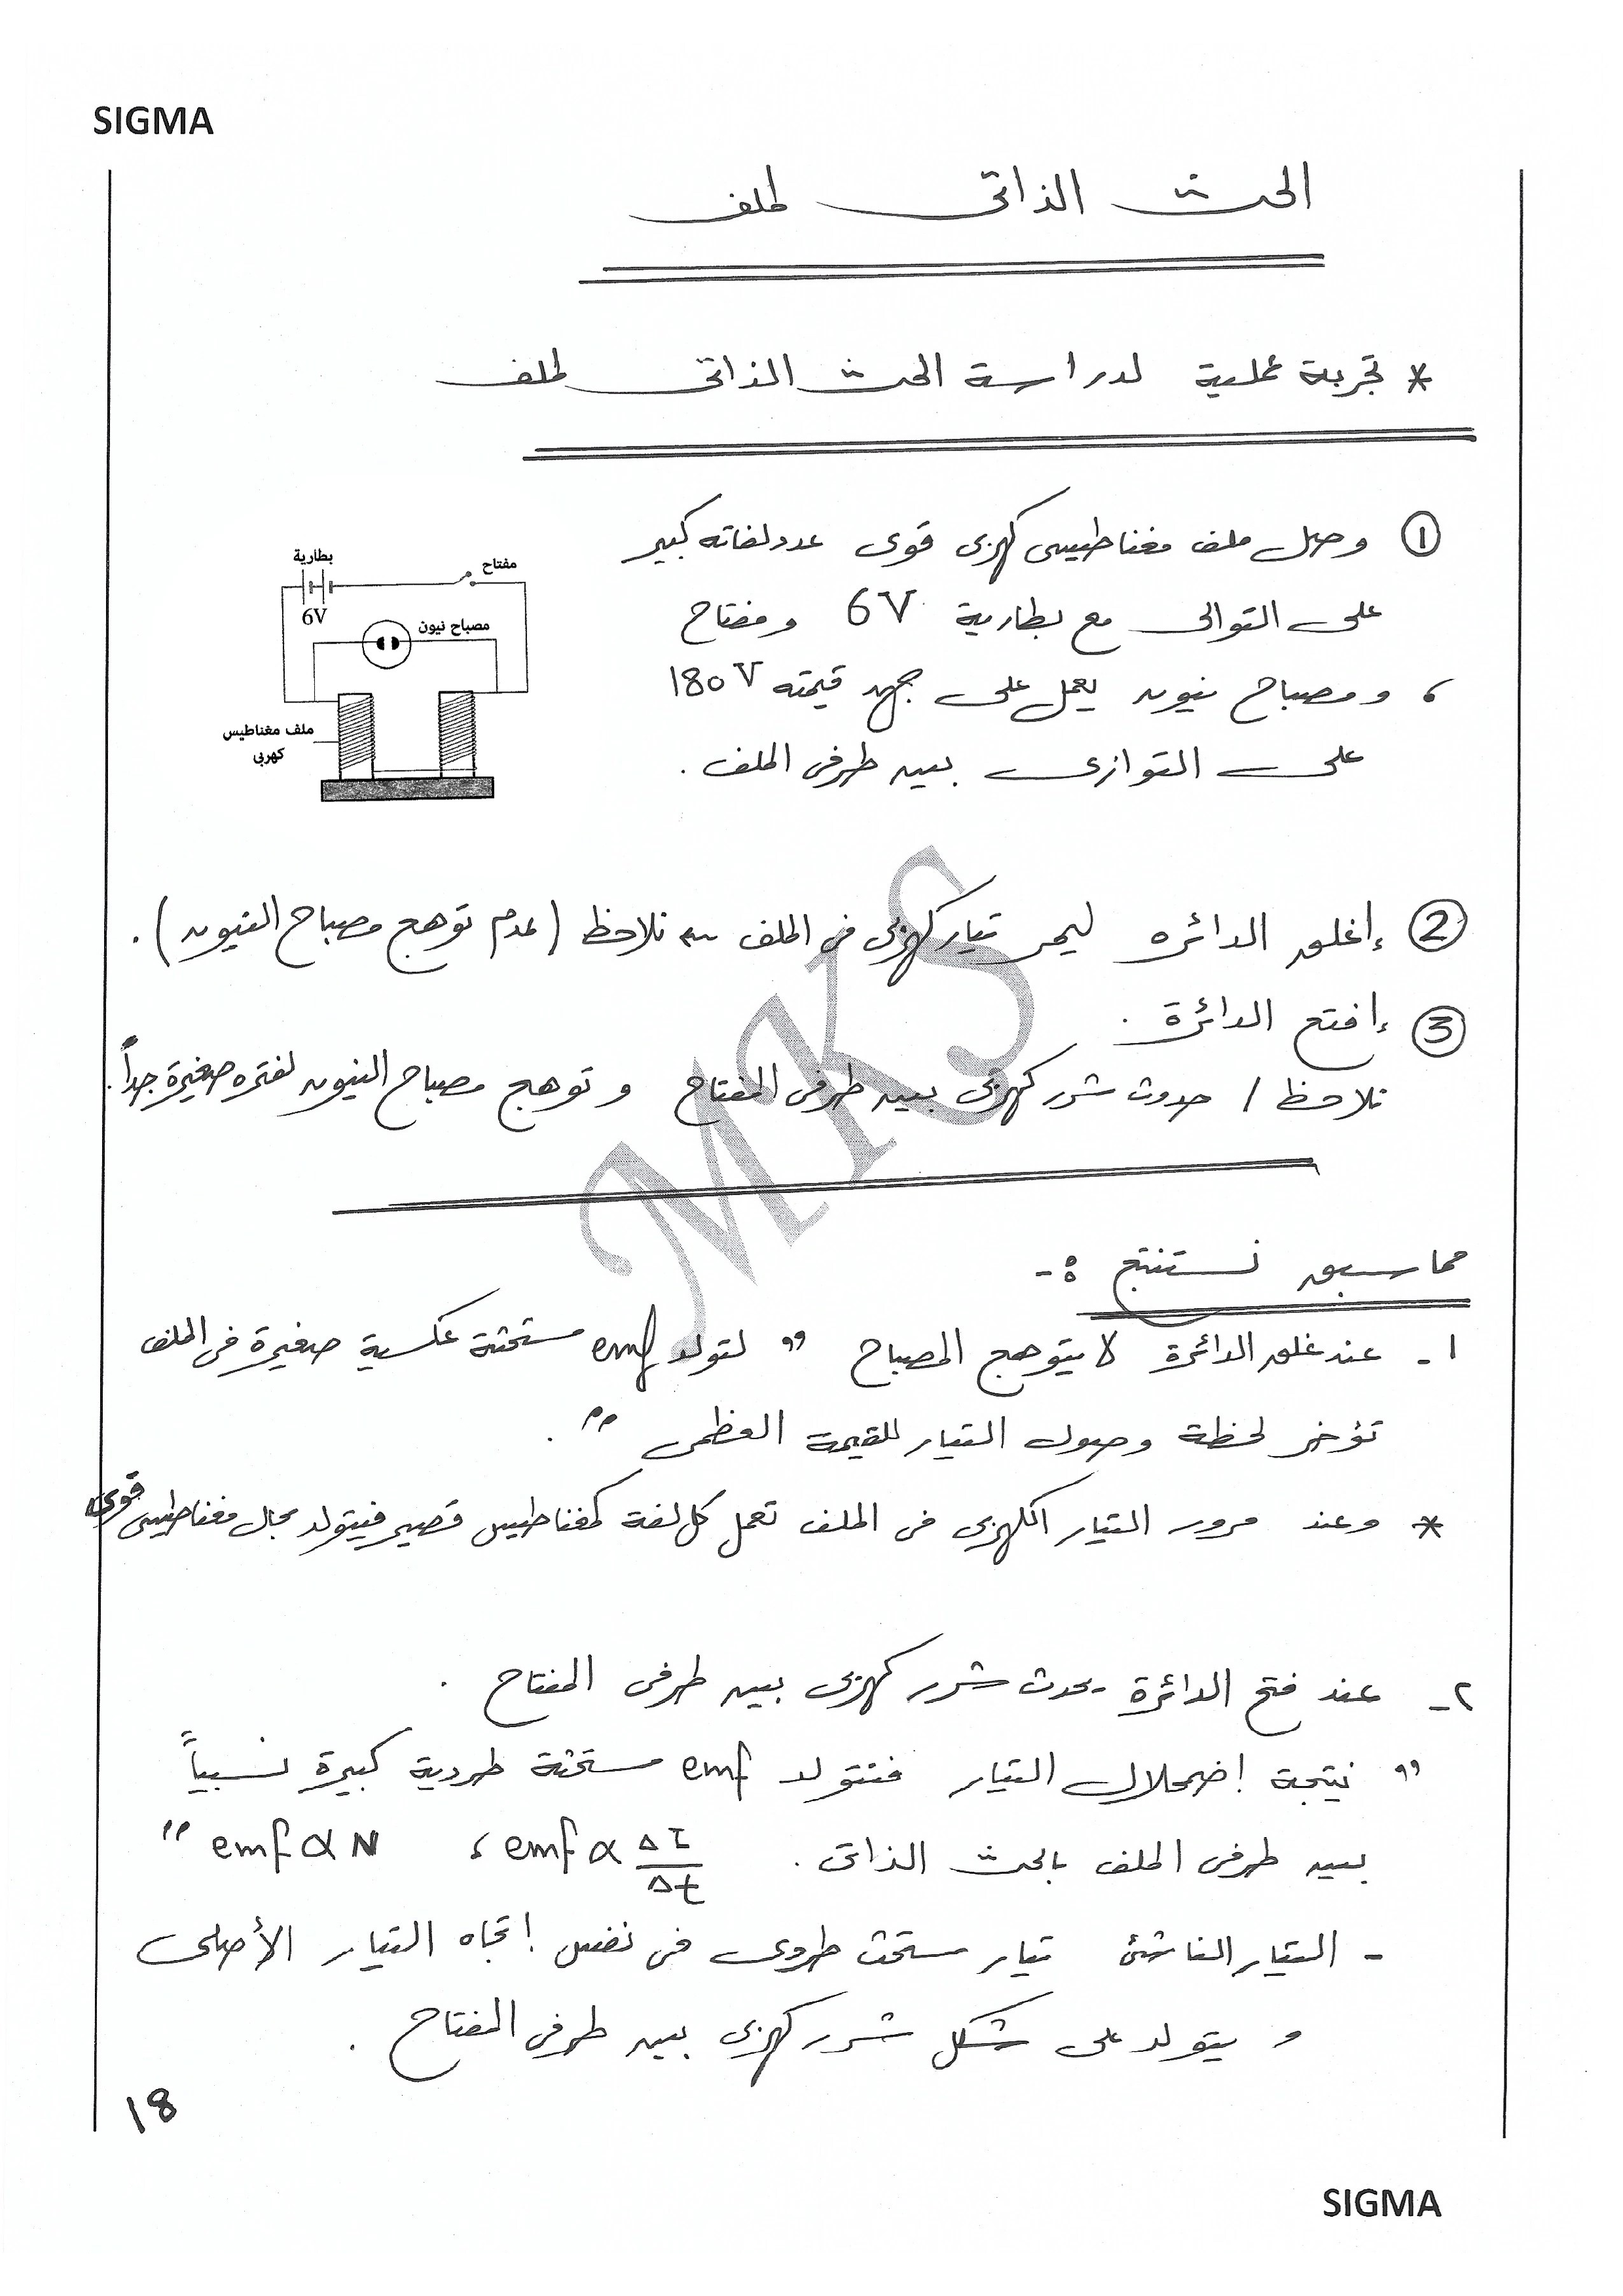 SIGMA
الحث الذاتى لملف
* تجربة عملية لدراسة الحث الذاتى لملف
① وصل ملف مغناطيسى كهربى قوى عدد لفاته كبير
على التوالى مع بطارية 6V ومفتاح
، ومصباح نيون يعمل على جهد قيمته 180V
على التوازى بين طرفى الملف .
بطارية
مفتاح
6V
مصباح نيون
ملف مغناطيس
كهربى
② إغلق الدائره ليمر تيار كهربى فى الملف نلاحظ (عدم توهج مصباح النيون) .
③ إفتح الدائرة .
نلاحظ / حدوث شرر كهربى بين طرفى المفتاح و توهج مصباح النيون لفتره صغيرة جداً .
MKS
مما سبق نستنتج :-
١- عند غلق الدائرة لا يتوهج المصباح " لتولد emf مستحثة عكسية صغيرة فى الملف
تؤخر لحظة وصول التيار للقيمة العظمى " .
* وعند مرور التيار الكهربى فى الملف تعمل كل لفة كمغناطيس قصير فيتولد مجال مغناطيسى قوى
٢- عند فتح الدائرة يحدث شرر كهربى بين طرفى المفتاح .
" نتيجة إضمحلال التيار فتتولد emf مستحثة طردية كبيرة نسبياً
بين طرفى الملف بالحث الذاتى . emf α ΔI/Δt ، emf α N "
- التيار الناشئ تيار مستحث طردى فى نفس إتجاه التيار الأصلى
و يتولد على شكل شرر كهربى بين طرفى المفتاح .
18
SIGMA